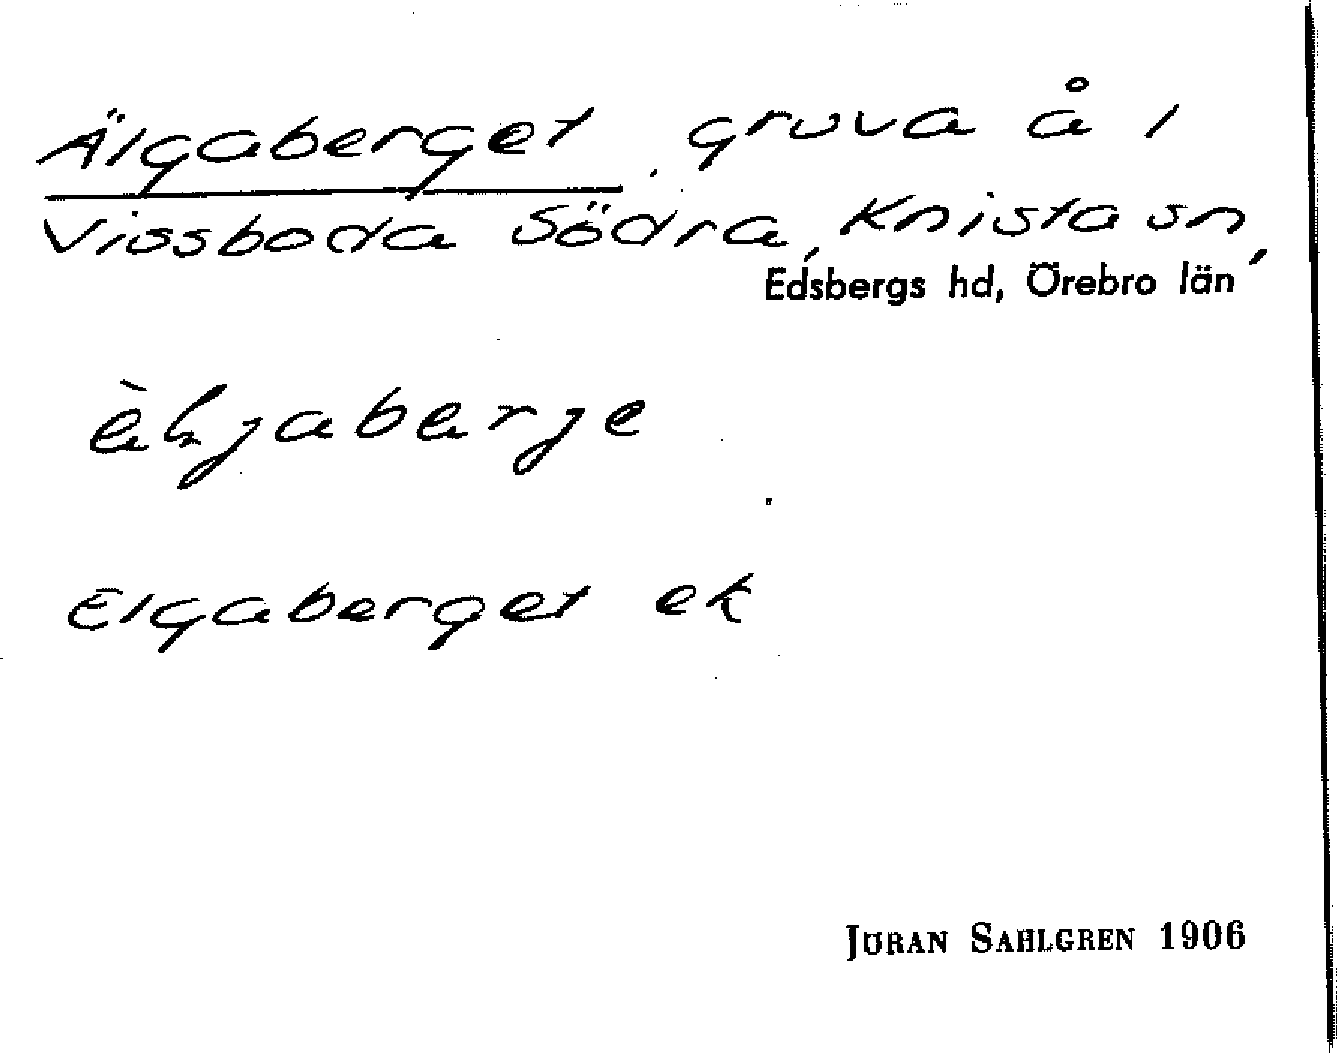 Älgaberget, gruva å l
Vissboda Södra, Knista sn,
Edsbergs hd, Örebro län
Elgaberget ek
JÖRAN SAHLGREN 1906